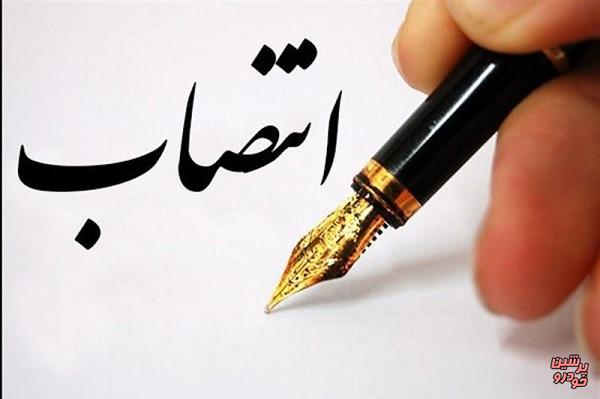 انتصاب
پرشین
خودرو